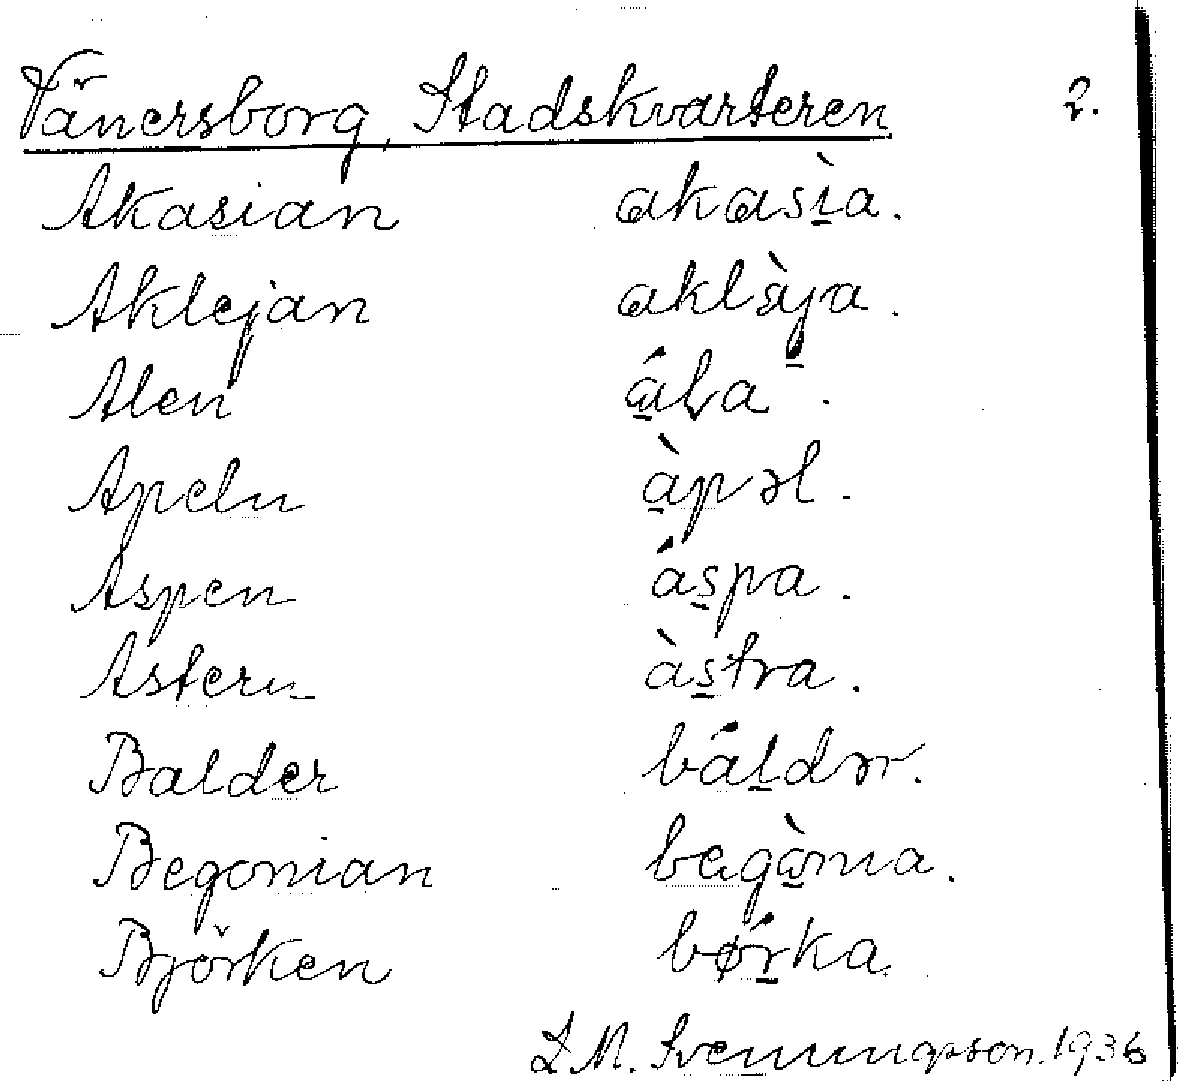 Vänersborg, Stadskvarteren. 2.
Akasian akasì̱a.
Aklejan aklæ̀j̱a.
Alen á̱la.
Apeln à̱pəl.
Aspen ás̱pa.
Astern às̱tra.
Balder báḻdər.
Begonian begò̱nia.
Björken bǿṟka.
1936